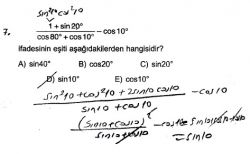 sin²10 cos²10
7. 1 + sin20°
cos80° + cos10° - cos10°
ifadesinin eşiti aşağıdakilerden hangisidir?
A) sin40° B) cos20° C) sin20°
D) sin10° E) cos10°
sin²10 + cos²10 + 2sin10 cos10 - cos10
sin10 + cos10
(sin10 + cos10)² - cos10
sin10 + cos10
= sin10